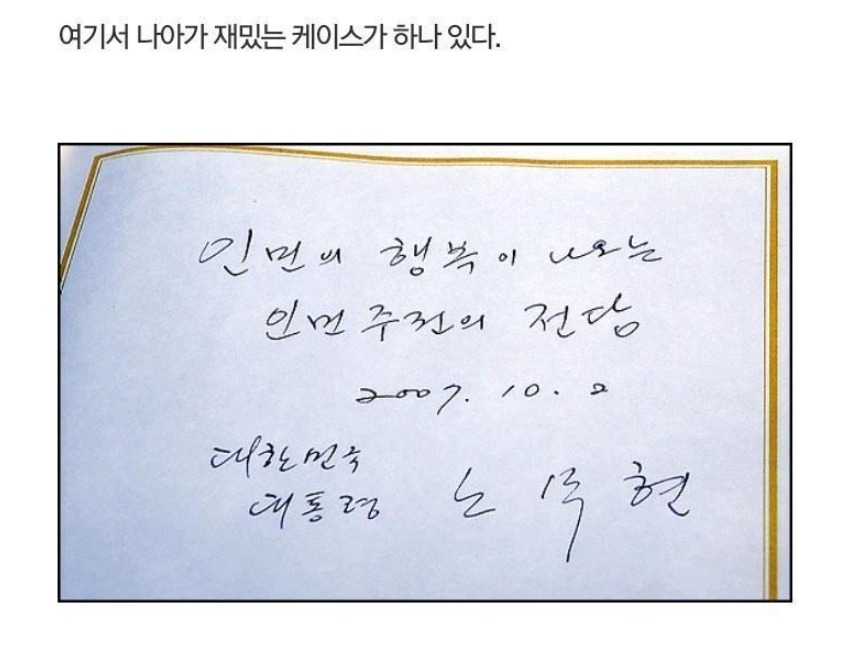 여기서 나아가 재밌는 케이스가 하나 있다.
인민의 행복이 나오는
인민 주권의 전당
2007. 10. 2
대한민국
대통령 노무현